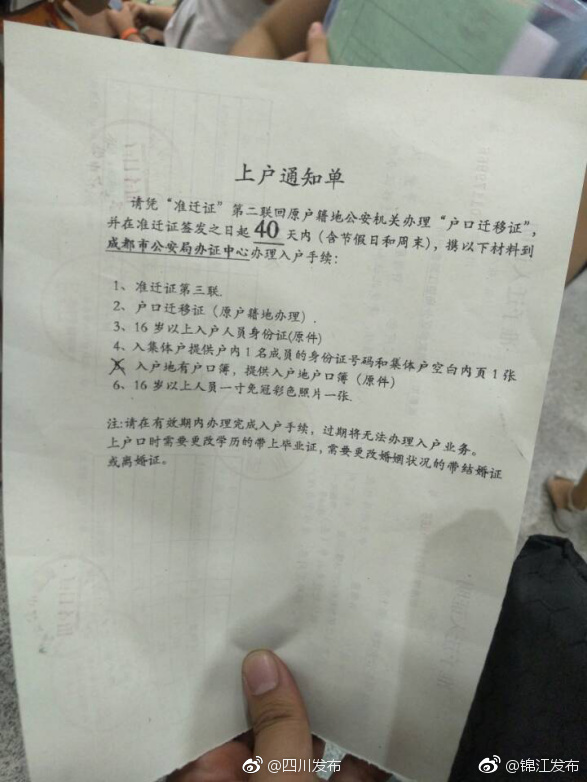 上户通知单
请凭“准迁证”第二联回原户籍地公安机关办理“户口迁移证”，
并在准迁证签发之日起40天内（含节假日和周末），携以下材料到
成都市公安局办证中心办理入户手续：
1、准迁证第三联.
2、户口迁移证（原户籍地办理）.
3、16岁以上入户人员身份证(原件)
4、入集体户提供户内1名成员的身份证号码和集体户空白内页1张
入户地有户口簿，提供入户地户口簿（原件）
6、16岁以上人员一寸免冠彩色照片一张.
注:请在有效期内办理完成入户手续，过期将无法办理入户业务。
上户口时需要更改学历的带上毕业证,需要更改婚姻状况的带结婚证
或离婚证。
@四川发布
@锦江发布